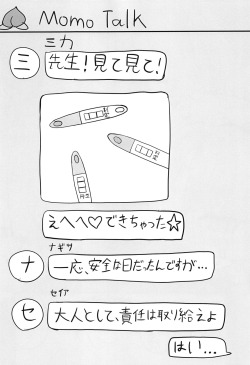 Momo Talk
ミカ
ミ
先生!見て見て!
えへへ♡できちゃった☆
ナギサ
ナ
一応、安全な日だったんですが…
セイア
セ
大人として、責任は取り給えよ
はい…